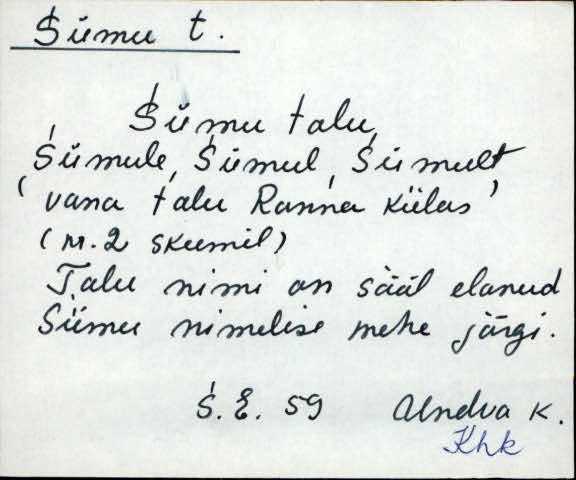 Siimu t.
Siimu talu,
Siimule, Siimul, Siimult
'vana talu Ranna külas'
(n. 2 skeemil)
Talu nimi on sääl elanud
Siimu nimelise mehe järgi.
S. E. 59 Undva K.
Khk